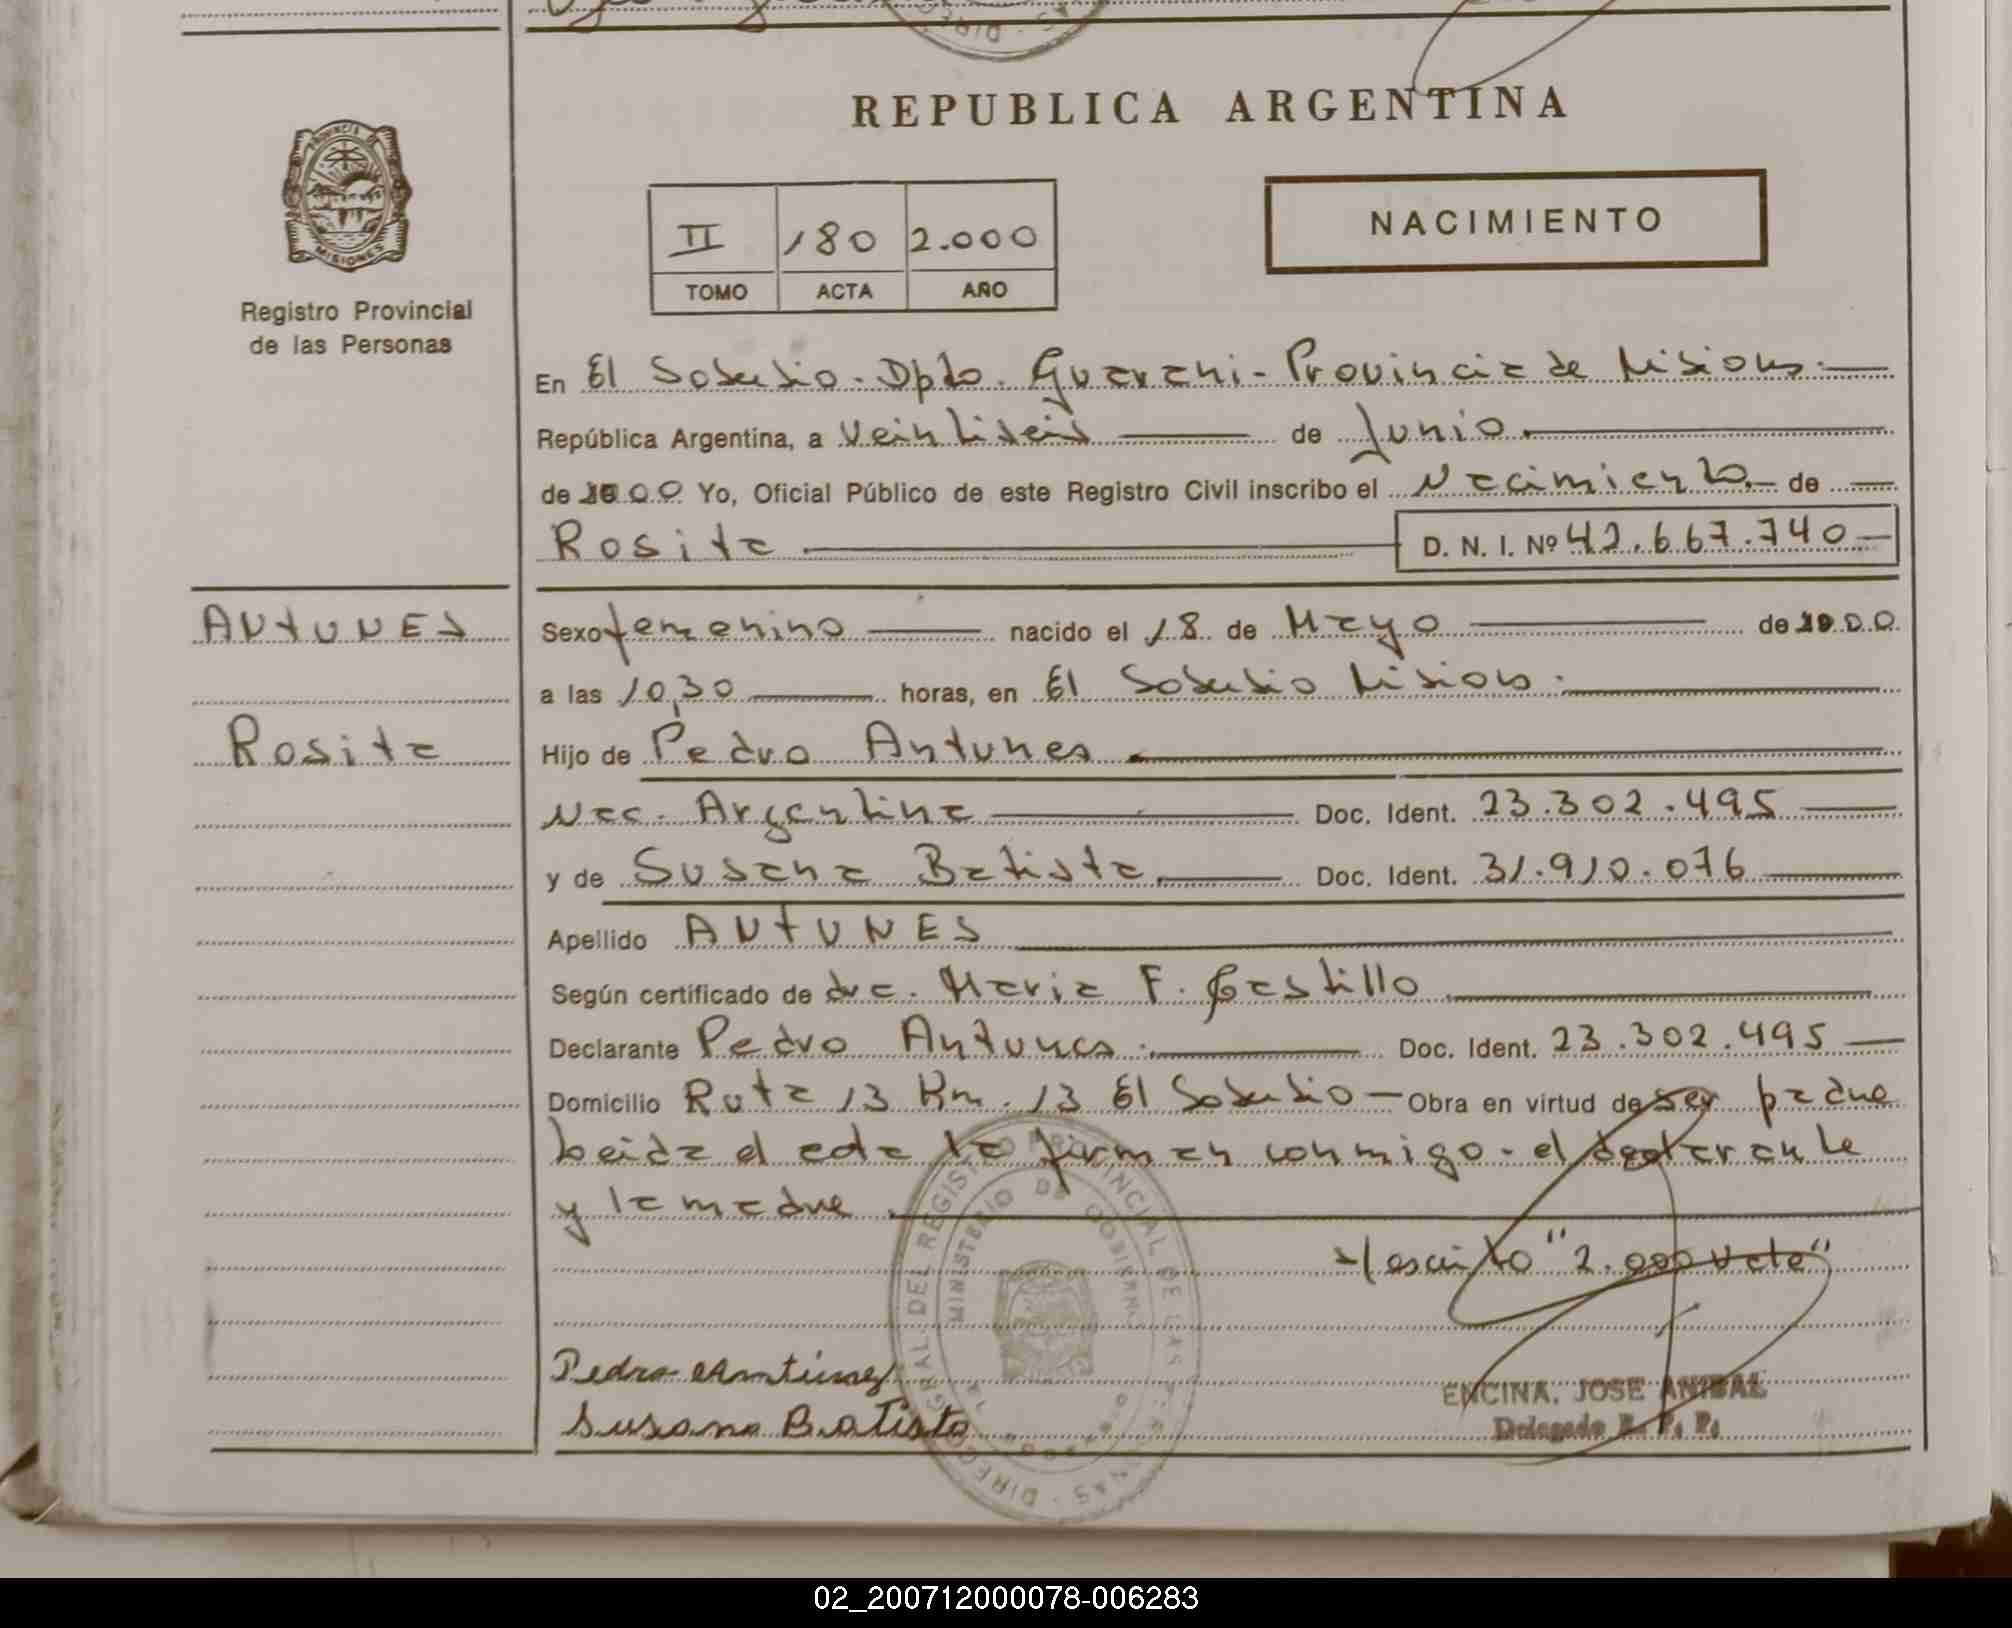 REPUBLICA ARGENTINA
NACIMIENTO
II 180 2.000
TOMO ACTA AÑO
MISIONES
Registro Provincial
de las Personas
En El Soberbio - Dpto. Guarani - Provincia de Misiones.-
República Argentina, a Veintiseis de Junio.
de 2000 Yo, Oficial Público de este Registro Civil inscribo el Nacimiento.- de
Rosita D. N. I. Nº 42.667.740
ANTUNES
Sexo femenino nacido el 18 de Mayo de 2000
a las 10,30 horas, en El Soberbio Misiones.
Rosita
Hijo de Pedro Antunes
Nac. Argentina Doc. Ident. 23.302.495
y de Susana Batista Doc. Ident. 31.910.076
Apellido ANTUNES
Según certificado de dra. Maria F. Castillo
Declarante Pedro Antunes. Doc. Ident. 23.302.495
Domicilio Ruta 13 Km. 13 El Soberbio - Obra en virtud de ser padre
Leida el acta la firman conmigo - el declarante
y la madre.
s/escrito "2.000 vale"
Pedro Antunez
Susana Batista
DIREC GRAL. DEL REGISTRO PROVINCIAL DE LAS PERSONAS
MINISTERIO DE GOBIERNO
ENCINA, JOSE ANIBAL
Delegado R. P. P.
02_200712000078-006283